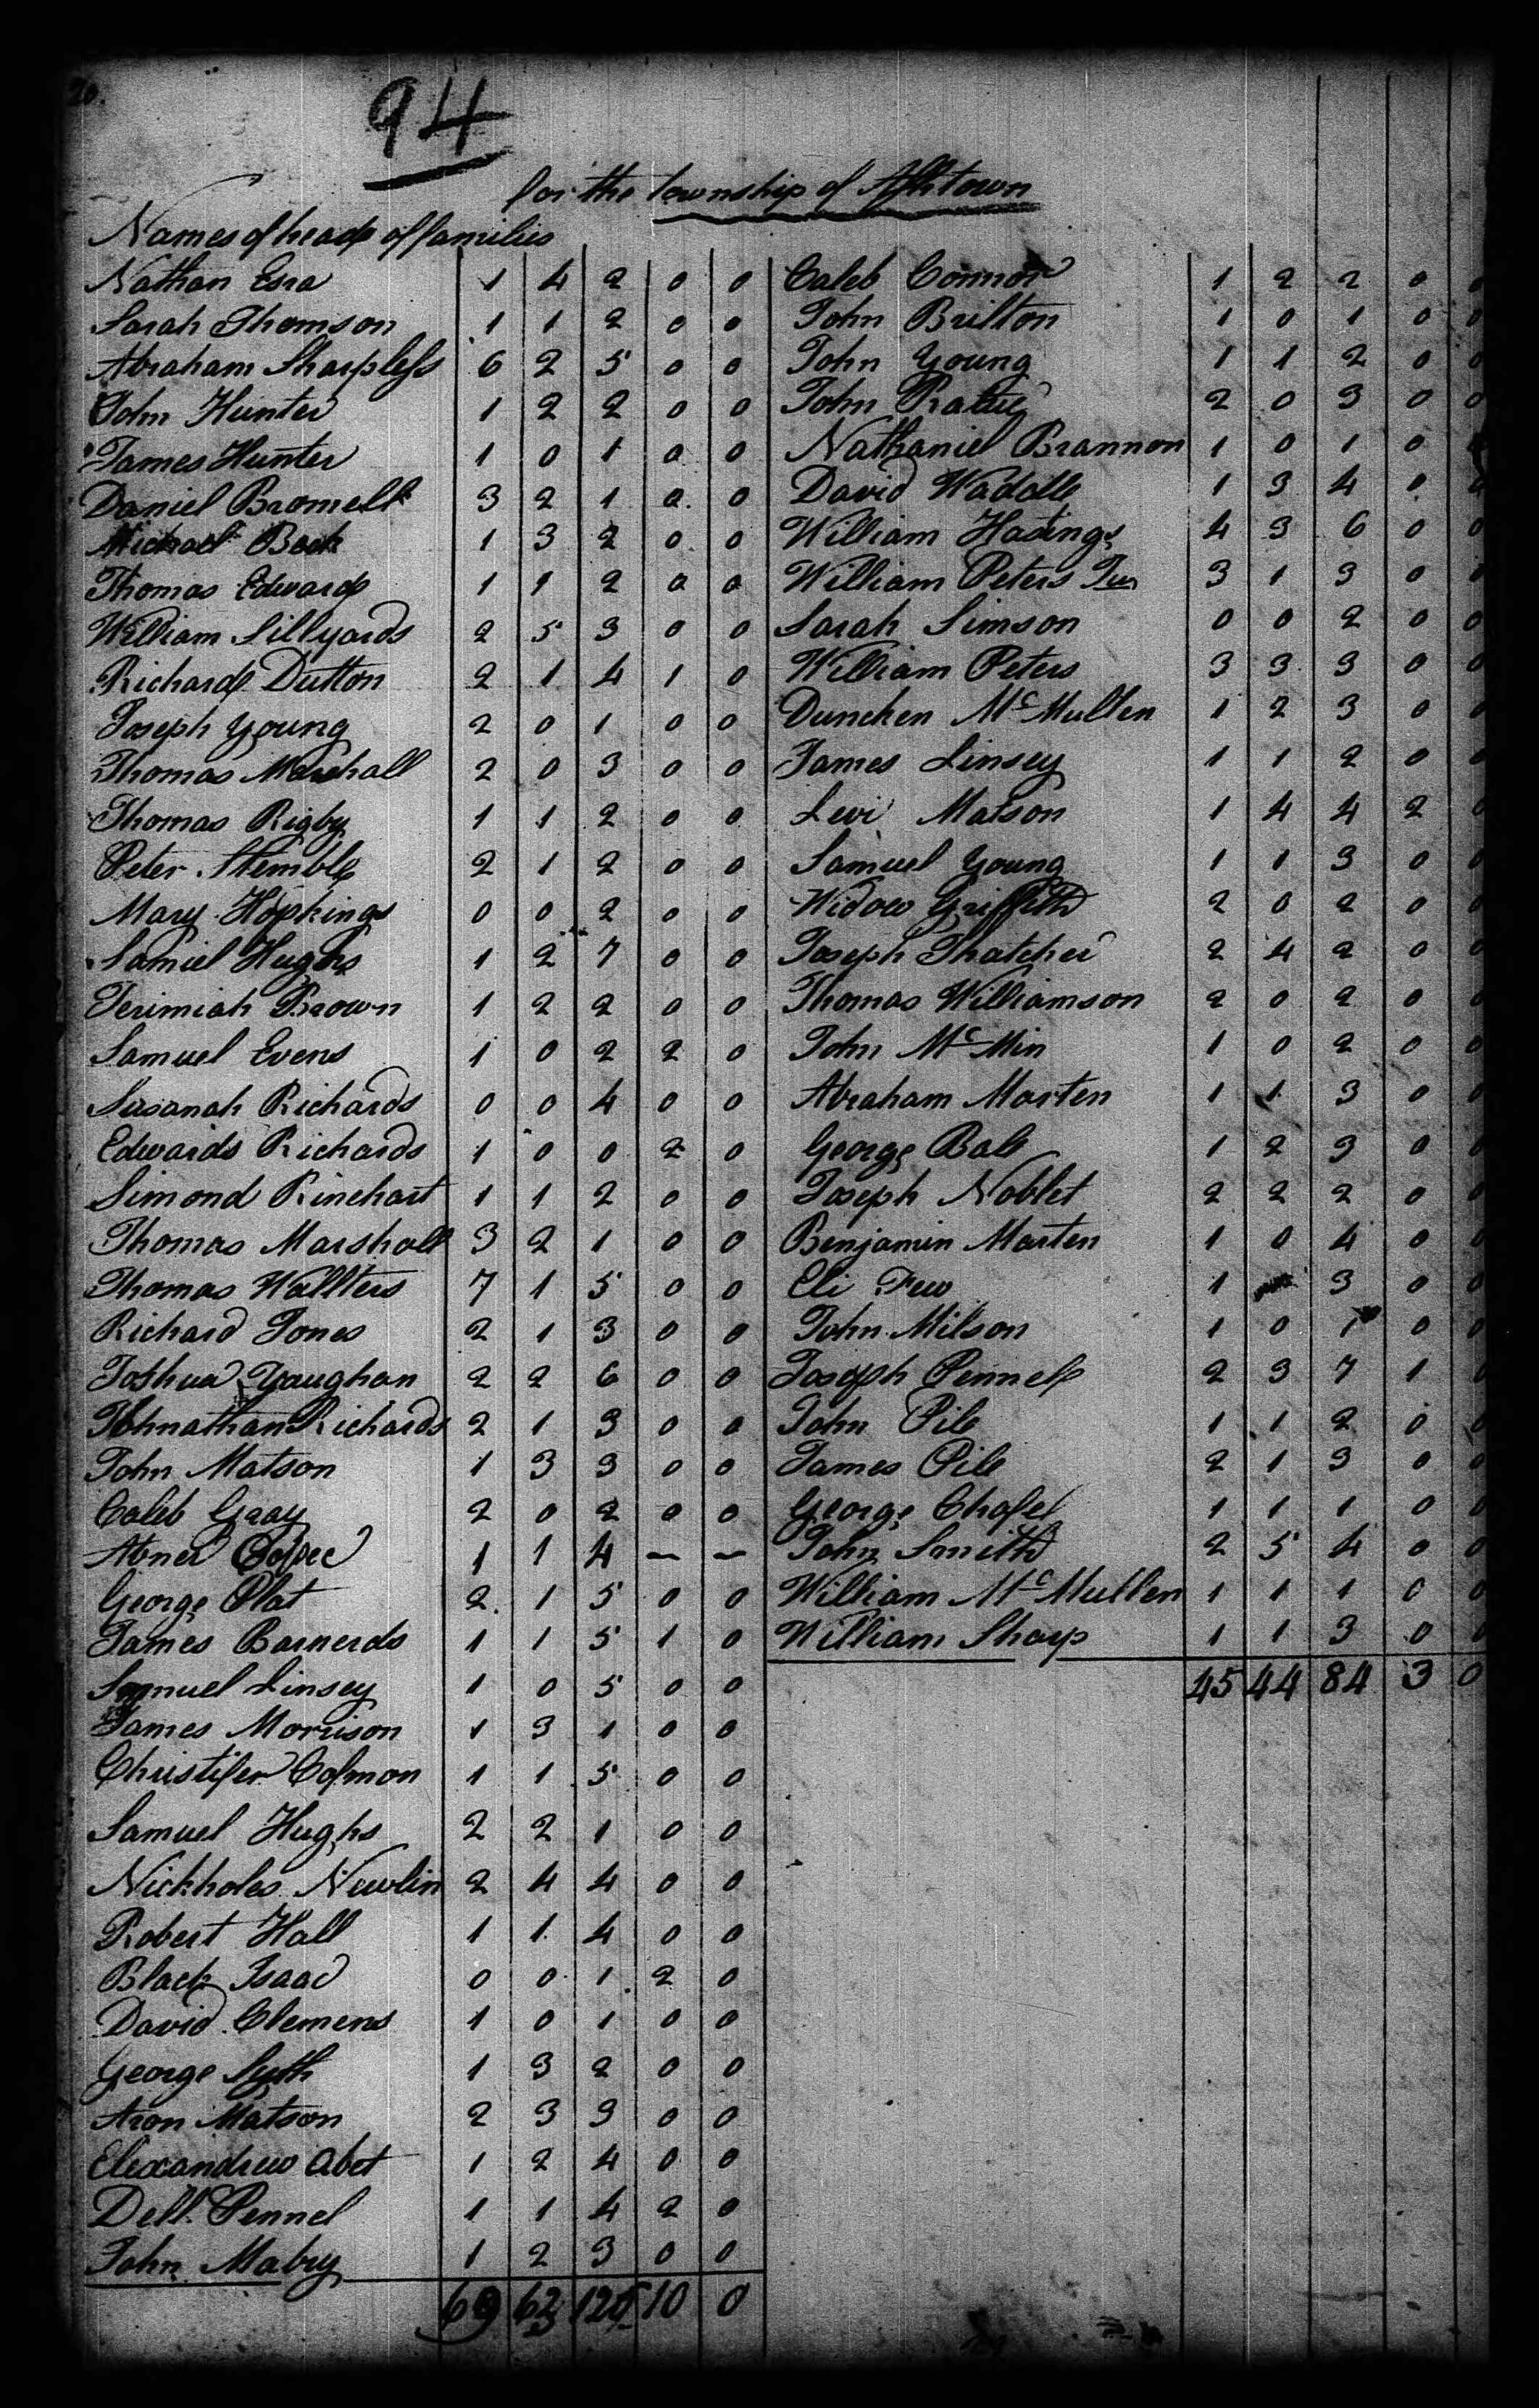 94
for the township of Ashtown
Names of heads of families
Nathan Esra 1 4 2 0 0
Sarah Thomson 1 1 2 0 0
Abraham Sharpless 6 2 5 0 0
John Hunter 1 2 2 0 0
James Hunter 1 0 1 0 0
Daniel Bromell 3 2 1 0 0
Michael Beck 1 3 2 0 0
Thomas Edwards 1 1 2 0 0
William Sillyards 2 5 3 0 0
Richard Dutton 2 1 4 1 0
Joseph Young 2 0 1 0 0
Thomas Marshall 2 0 3 0 0
Thomas Rigby 1 1 2 0 0
Peter Stemble 2 1 2 0 0
Mary Hopkings 0 0 2 0 0
Samuel Hughs 1 2 7 0 0
Jerimiah Brown 1 2 2 0 0
Samuel Evens 1 0 2 2 0
Susanah Richards 0 0 4 0 0
Edwards Richards 1 0 0 2 0
Simond Rinehart 1 1 2 0 0
Thomas Marshall 3 2 1 0 0
Thomas Wallters 7 1 5 0 0
Richard Jones 2 1 3 0 0
Joshua Vaughan 2 2 6 0 0
Johnathan Richards 2 1 3 0 0
John Matson 1 3 3 0 0
Caleb Gray 2 0 2 0 0
Abner 1 1 4 — —
George Plat 2 1 5 0 0
James Barnerds 1 1 5 1 0
Samuel Linsey 1 0 5 0 0
James Morrison 1 3 1 0 0
Christifer 1 1 5 0 0
Samuel Hughs 2 2 1 0 0
Nickholes Newlin 2 4 4 0 0
Robert Hall 1 1 4 0 0
Black Isaac 0 0 1 2 0
David Clemens 1 0 1 0 0
George 1 3 2 0 0
Aron Matson 2 3 3 0 0
Elexandrew Abet 1 2 4 0 0
Dell Pennel 1 1 4 2 0
John Mabry 1 2 3 0 0
69 63 125 10 0
Caleb Connor 1 2 2 0 0
John Brilton 1 0 1 0 0
John Young 1 1 2 0 0
John 2 0 3 0 0
Nathaniel Brannon 1 0 1 0
David Waddle 1 3 4 0 0
William Hastings 4 3 6 0 0
William Peters Jur 3 1 3 0 0
Sarah Simson 0 0 2 0 0
William Peters 3 3 3 0 0
Duncken McMullen 1 2 3 0 0
James Linsey 1 1 2 0 0
Levi Matson 1 4 4 2 0
Samuel Young 1 1 3 0 0
Widow Griffith 2 0 2 0 0
Joseph Thatcher 2 4 2 0 0
Thomas Williamson 2 0 2 0 0
John McMin 1 0 2 0 0
Abraham Marten 1 1 3 0 0
George Bale 1 2 3 0 0
Joseph Noblet 2 2 2 0 0
Benjamin Marten 1 0 4 0 0
Eli Few 1 3 0 0
John Milson 1 0 1 0 0
Joseph Pennell 2 3 7 1 0
John Pile 1 1 2 0 0
James Pile 2 1 3 0 0
George Chafel 1 1 1 0 0
John Smith 2 5 4 0 0
William McMullen 1 1 1 0 0
William Sharp 1 1 3 0 0
45 44 84 3 0